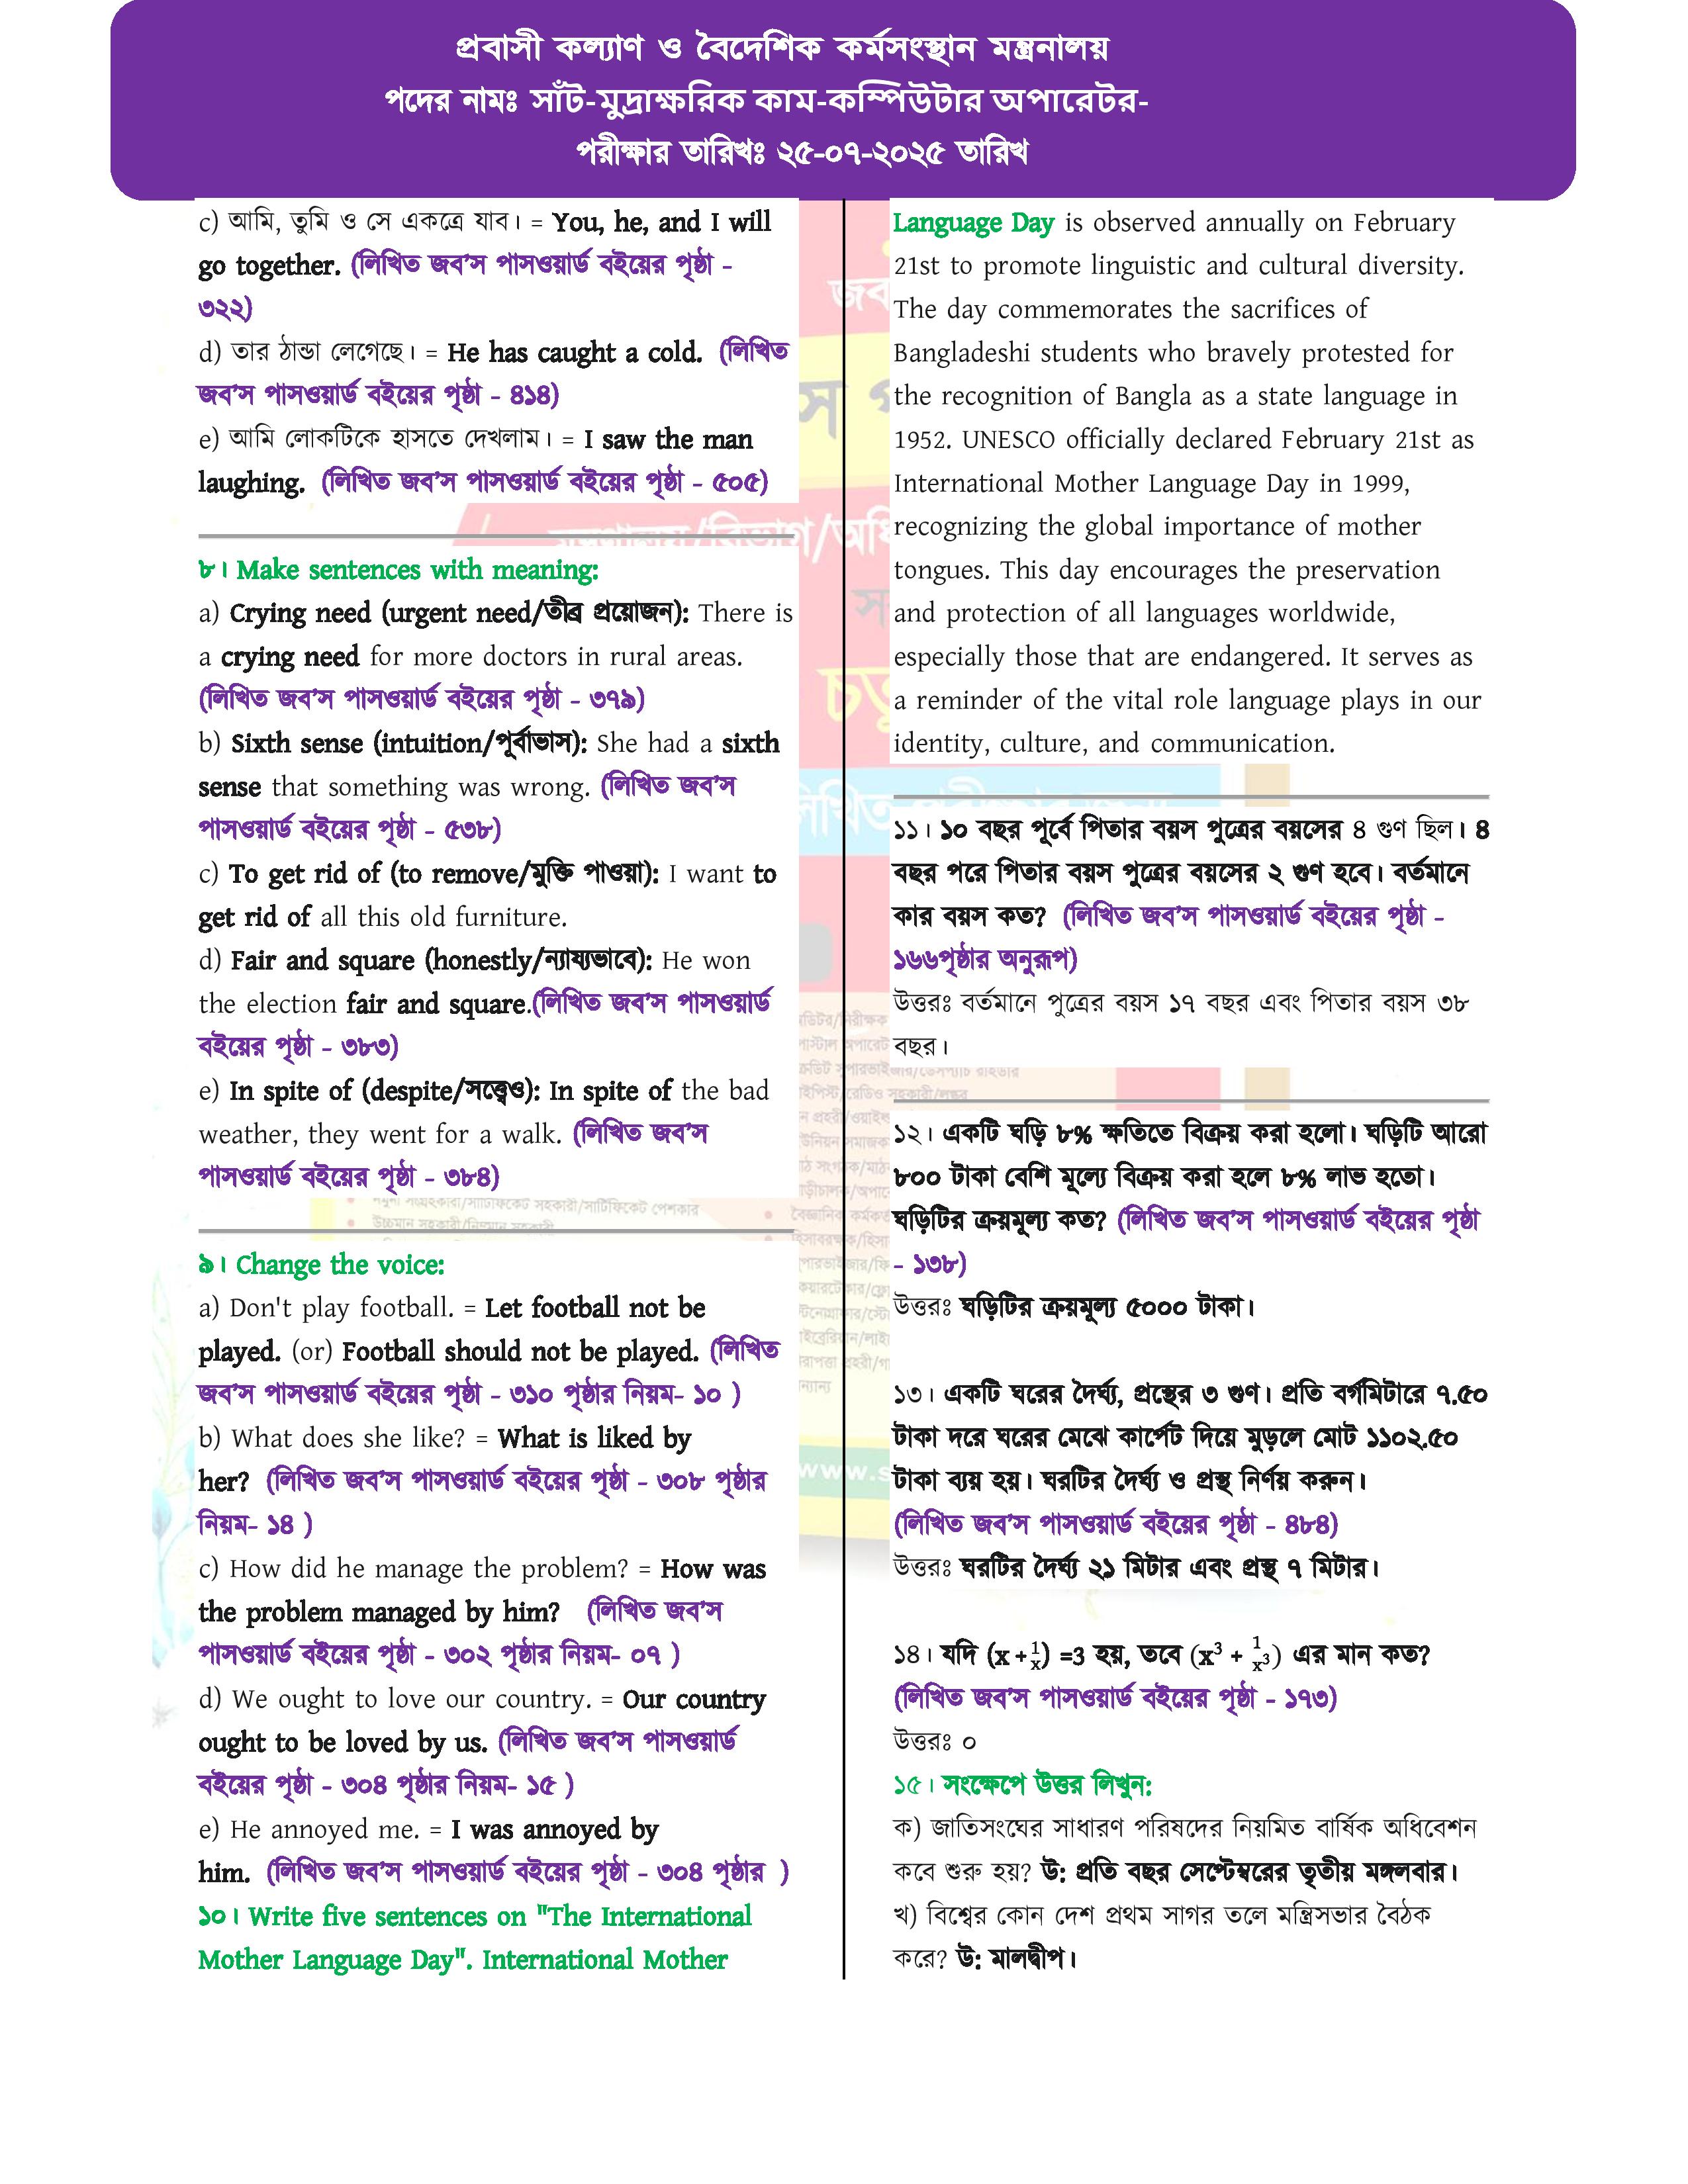 প্রবাসী কল্যাণ ও বৈদেশিক কর্মসংস্থান মন্ত্রনালয়
পদের নামঃ সাঁট-মুদ্রাক্ষরিক কাম-কম্পিউটার অপারেটর-
পরীক্ষার তারিখঃ ২৫-০৭-২০২৫ তারিখ
c) আমি, তুমি ও সে একত্রে যাব। = You, he, and I will
go together. (লিখিত জব’স পাসওয়ার্ড বইয়ের পৃষ্ঠা -
৩২২)
d) তার ঠান্ডা লেগেছে। = He has caught a cold. (লিখিত
জব’স পাসওয়ার্ড বইয়ের পৃষ্ঠা - ৪১৪)
e) আমি লোকটিকে হাসতে দেখলাম। = I saw the man
laughing. (লিখিত জব’স পাসওয়ার্ড বইয়ের পৃষ্ঠা - ৫০৫)
৮। Make sentences with meaning:
a) Crying need (urgent need/তীব্র প্রয়োজন): There is
a crying need for more doctors in rural areas.
(লিখিত জব’স পাসওয়ার্ড বইয়ের পৃষ্ঠা - ৩৭৯)
b) Sixth sense (intuition/পূর্বাভাস): She had a sixth
sense that something was wrong. (লিখিত জব’স
পাসওয়ার্ড বইয়ের পৃষ্ঠা - ৫৩৮)
c) To get rid of (to remove/মুক্তি পাওয়া): I want to
get rid of all this old furniture.
d) Fair and square (honestly/ন্যায্যভাবে): He won
the election fair and square.(লিখিত জব’স পাসওয়ার্ড
বইয়ের পৃষ্ঠা - ৩৮৩)
e) In spite of (despite/সত্ত্বেও): In spite of the bad
weather, they went for a walk. (লিখিত জব’স
পাসওয়ার্ড বইয়ের পৃষ্ঠা - ৩৮৪)
৯। Change the voice:
a) Don't play football. = Let football not be
played. (or) Football should not be played. (লিখিত
জব’স পাসওয়ার্ড বইয়ের পৃষ্ঠা - ৩১০ পৃষ্ঠার নিয়ম- ১০ )
b) What does she like? = What is liked by
her? (লিখিত জব’স পাসওয়ার্ড বইয়ের পৃষ্ঠা - ৩০৮ পৃষ্ঠার
নিয়ম- ১৪ )
c) How did he manage the problem? = How was
the problem managed by him? (লিখিত জব’স
পাসওয়ার্ড বইয়ের পৃষ্ঠা - ৩০২ পৃষ্ঠার নিয়ম- ০৭ )
d) We ought to love our country. = Our country
ought to be loved by us. (লিখিত জব’স পাসওয়ার্ড
বইয়ের পৃষ্ঠা - ৩০৪ পৃষ্ঠার নিয়ম- ১৫ )
e) He annoyed me. = I was annoyed by
him. (লিখিত জব’স পাসওয়ার্ড বইয়ের পৃষ্ঠা - ৩০৪ পৃষ্ঠার )
১০। Write five sentences on "The International
Mother Language Day". International Mother
Language Day is observed annually on February
21st to promote linguistic and cultural diversity.
The day commemorates the sacrifices of
Bangladeshi students who bravely protested for
the recognition of Bangla as a state language in
1952. UNESCO officially declared February 21st as
International Mother Language Day in 1999,
recognizing the global importance of mother
tongues. This day encourages the preservation
and protection of all languages worldwide,
especially those that are endangered. It serves as
a reminder of the vital role language plays in our
identity, culture, and communication.
১১। ১০ বছর পূর্বে পিতার বয়স পুত্রের বয়সের ৪ গুণ ছিল। ৪
বছর পরে পিতার বয়স পুত্রের বয়সের ২ গুণ হবে। বর্তমানে
কার বয়স কত? (লিখিত জব’স পাসওয়ার্ড বইয়ের পৃষ্ঠা -
১৬৬পৃষ্ঠার অনুরূপ)
উত্তরঃ বর্তমানে পুত্রের বয়স ১৭ বছর এবং পিতার বয়স ৩৮
বছর।
১২। একটি ঘড়ি ৮% ক্ষতিতে বিক্রয় করা হলো। ঘড়িটি আরো
৮০০ টাকা বেশি মূল্যে বিক্রয় করা হলে ৮% লাভ হতো।
ঘড়িটির ক্রয়মূল্য কত? (লিখিত জব’স পাসওয়ার্ড বইয়ের পৃষ্ঠা
- ১৩৮)
উত্তরঃ ঘড়িটির ক্রয়মূল্য ৫০০০ টাকা।
১৩। একটি ঘরের দৈর্ঘ্য, প্রস্থের ৩ গুণ। প্রতি বর্গমিটারে ৭.৫০
টাকা দরে ঘরের মেঝে কার্পেট দিয়ে মুড়লে মোট ১১০২.৫০
টাকা ব্যয় হয়। ঘরটির দৈর্ঘ্য ও প্রস্থ নির্ণয় করুন।
(লিখিত জব’স পাসওয়ার্ড বইয়ের পৃষ্ঠা - ৪৮৪)
উত্তরঃ ঘরটির দৈর্ঘ্য ২১ মিটার এবং প্রস্থ ৭ মিটার।
১৪। যদি (x + 1/x) =3 হয়, তবে (x³ + 1/x³) এর মান কত?
(লিখিত জব’স পাসওয়ার্ড বইয়ের পৃষ্ঠা - ১৭৩)
উত্তরঃ ০
১৫। সংক্ষেপে উত্তর লিখুন:
ক) জাতিসংঘের সাধারণ পরিষদের নিয়মিত বার্ষিক অধিবেশন
কবে শুরু হয়? উ: প্রতি বছর সেপ্টেম্বরের তৃতীয় মঙ্গলবার।
খ) বিশ্বের কোন দেশ প্রথম সাগর তলে মন্ত্রিসভার বৈঠক
করে? উ: মালদ্বীপ।